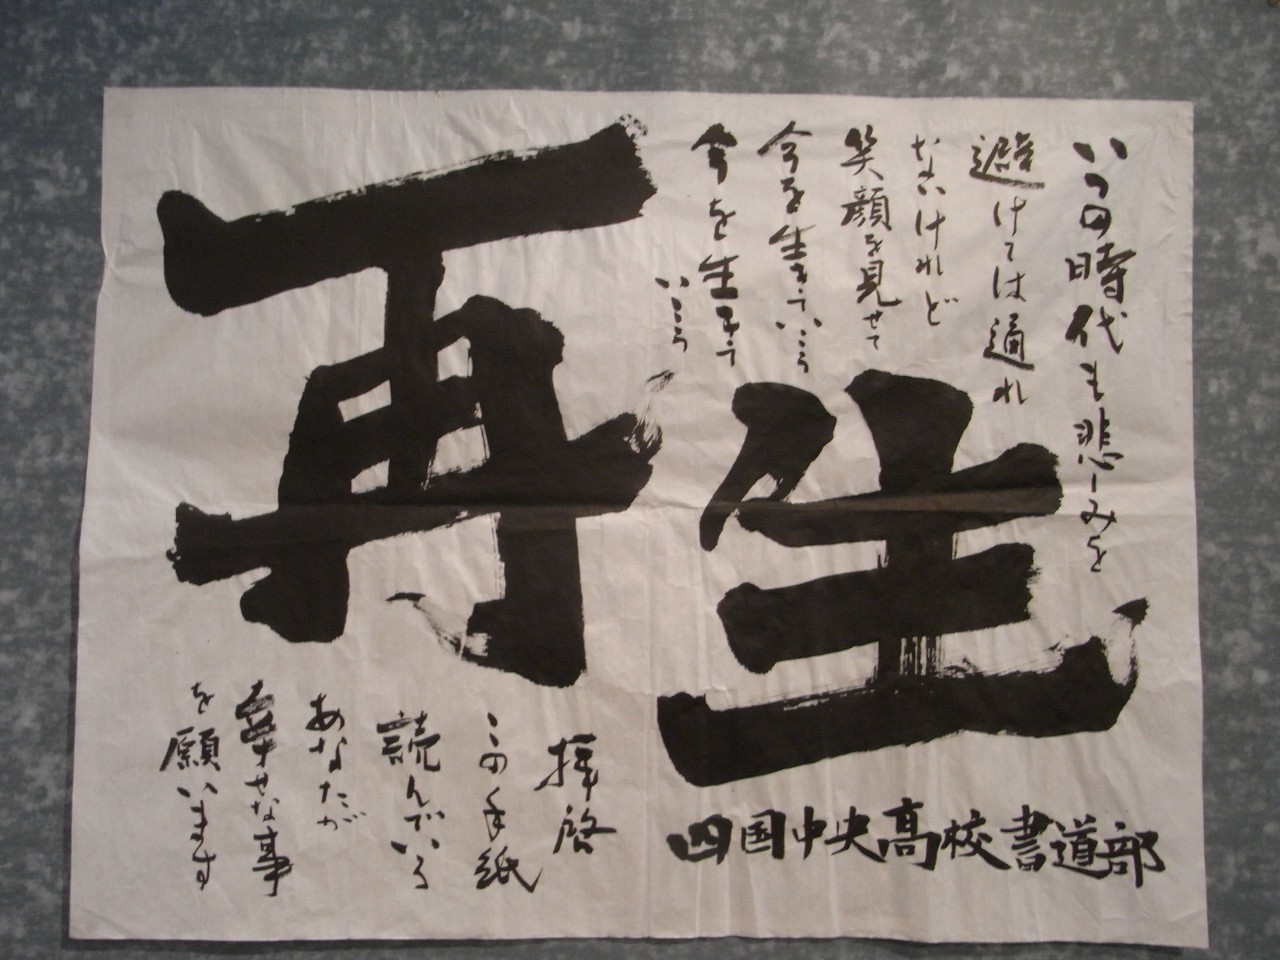 いつの時代も悲しみを
避けては通れ
ないけれど
笑顔を見せて
今を生きていこう
今を生きて
いこう
再生
拝啓
この手紙
読んでいる
あなたが
幸せな事
を願います
四国中央高校書道部